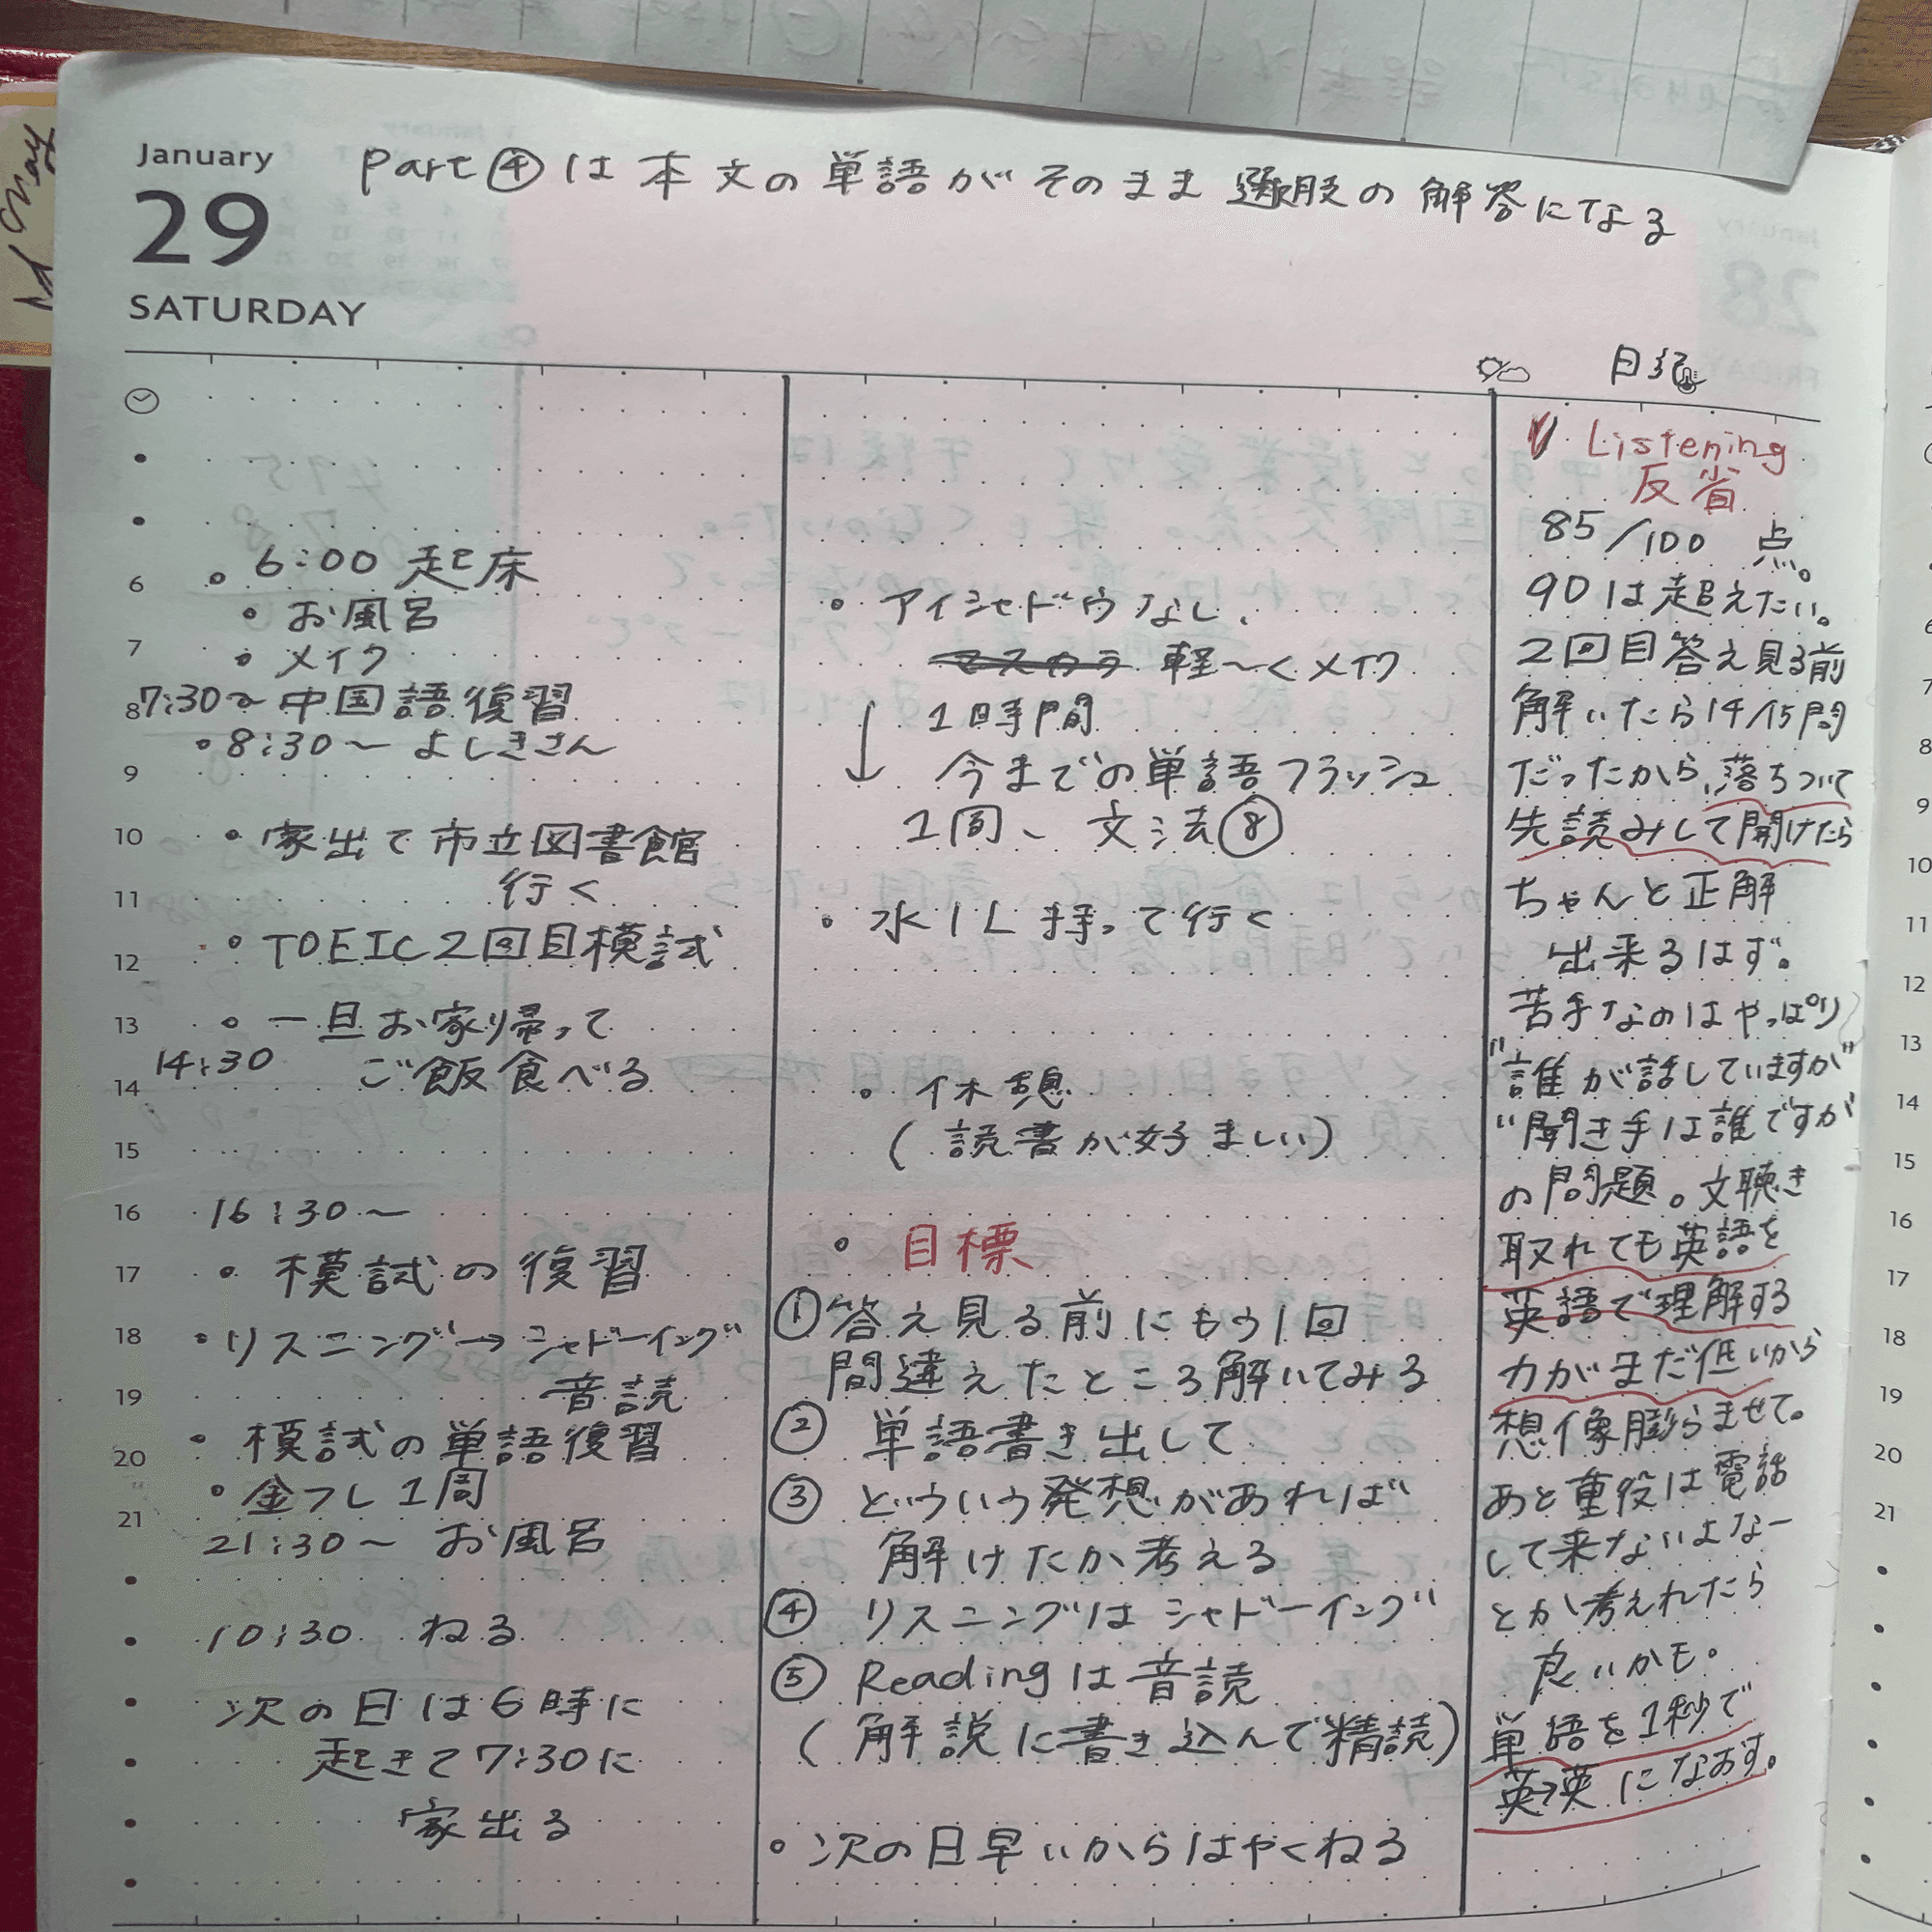 January
29
SATURDAY
Part④は本文の単語がそのまま選肢の解答になる
日記
6:00 起床
お風呂
メイク
7:30〜中国語復習
8:30〜よしきさん
家出て市立図書館
行く
TOEIC2回目模試
一旦お家帰って
14:30 ご飯食べる
16:30〜
模試の復習
リスニング→シャドーイング
音読
模試の単語復習
金フレ1周
21:30〜お風呂
10:30 ねる
次の日は6時に
起きて7:30に
家出る
6
7
8
9
10
11
12
13
14
15
16
17
18
19
20
21
アイシャドウなし、
マスカラ 軽〜くメイク
↓ 1時間
今までの単語フラッシュ
1周、文法⑧
水1L持って行く
休憩
(読書が好ましい)
目標
①答え見る前にもう1回
間違えたところ解いてみる
② 単語書き出して
③ どういう発想があれば
解けたか考える
④ リスニングはシャドーイング
⑤ Readingは音読
(解説に書き込んで精読)
次の日早いからはやくねる
Listening
反省
85/100 点。
90は超えたい。
2回目答え見る前
解いたら14/15問
だったから、落ちついて
先読みして聞けたら
ちゃんと正解
出来るはず。
苦手なのはやっぱり
"誰が話していますか"
"聞き手は誰ですか"
の問題。文聴き
取れても英語を
英語で理解する
力がまだ低いから
想像膨らませて。
あと重役は電話
して来ないよなー
とか考えれたら
良いかも。
単語を1秒で
英→英になおす。
6
7
8
9
10
11
12
13
14
15
16
17
18
19
20
21